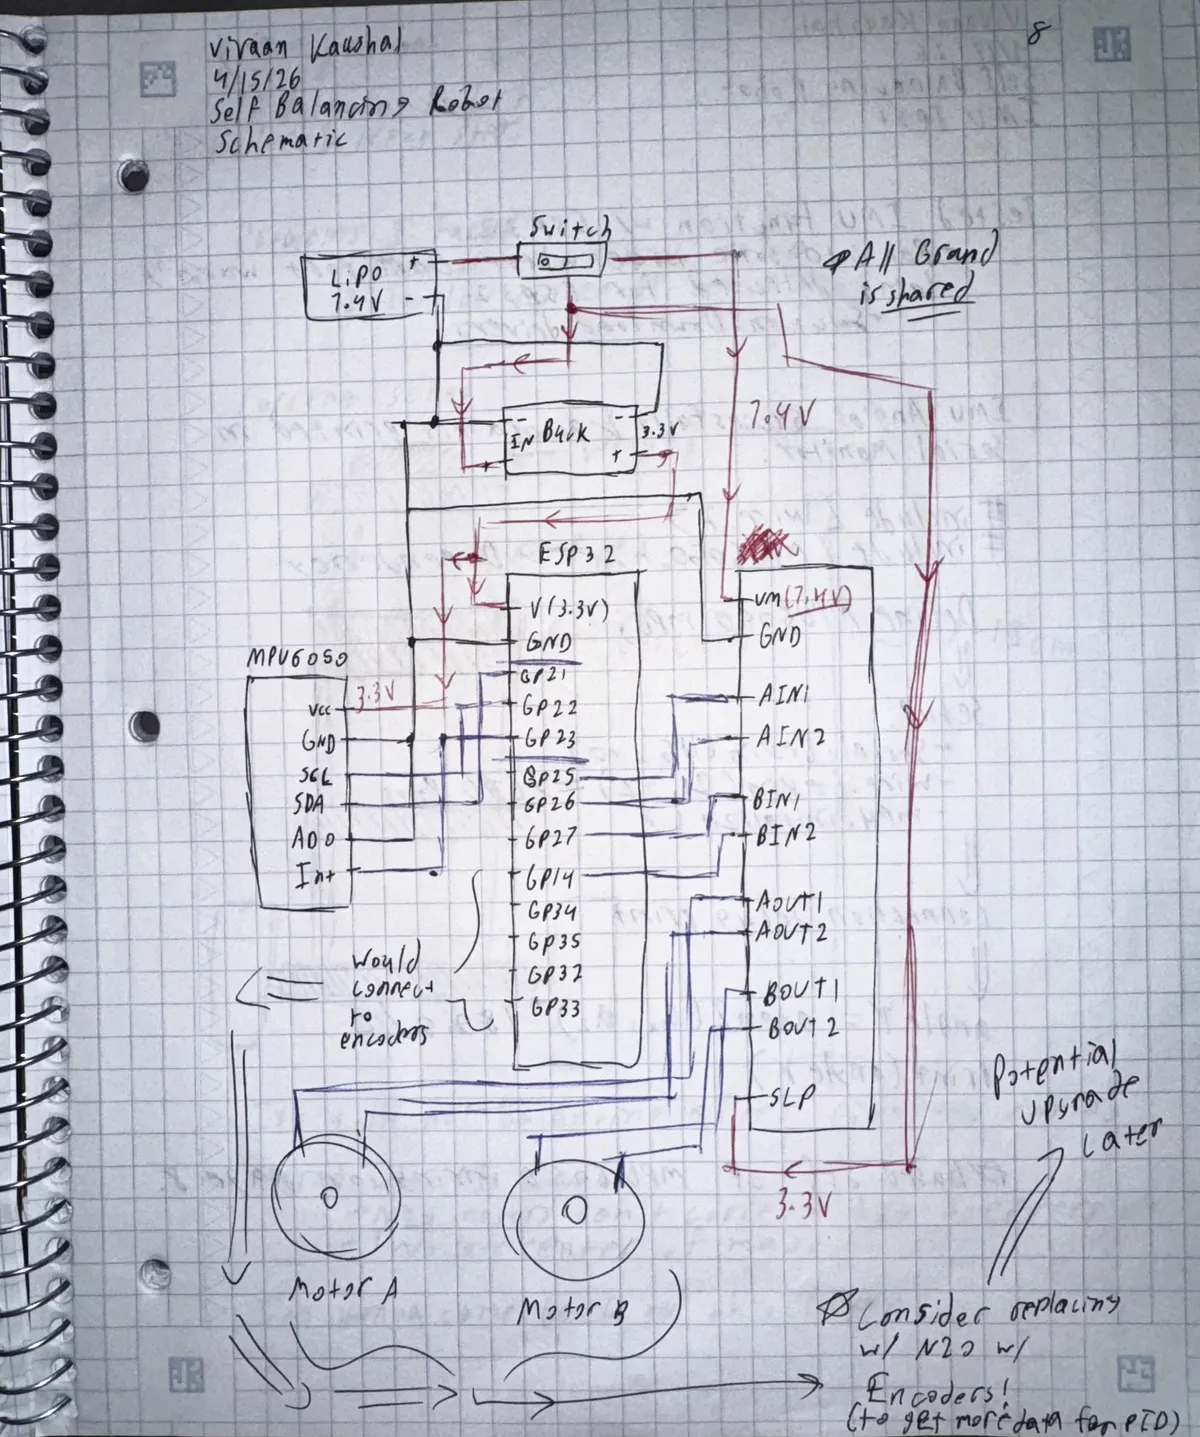 8
Vivaan Kaushal
4/15/26
Self Balancing Robot
Schematic
Switch
LiPO
7.4V
+
-
All Grand
is shared
7.4V
-
IN
Buck
-
3.3V
+
+
ESP32
V(3.3V)
GND
GP21
GP22
GP23
GP25
GP26
GP27
GP14
GP34
GP35
GP32
GP33
MPU6050
3.3V
VCC
GND
SCL
SDA
ADO
Int
vm(7.4V)
GND
AIN1
AIN2
BIN1
BIN2
AOUT1
AOUT2
BOUT1
BOUT2
SLP
3.3V
Would
connect
to
encoders
Motor A
Motor B
Potential
upgrade
Later
Consider replacing
w/ N20 w/
Encoders!
(to get more data for PID)